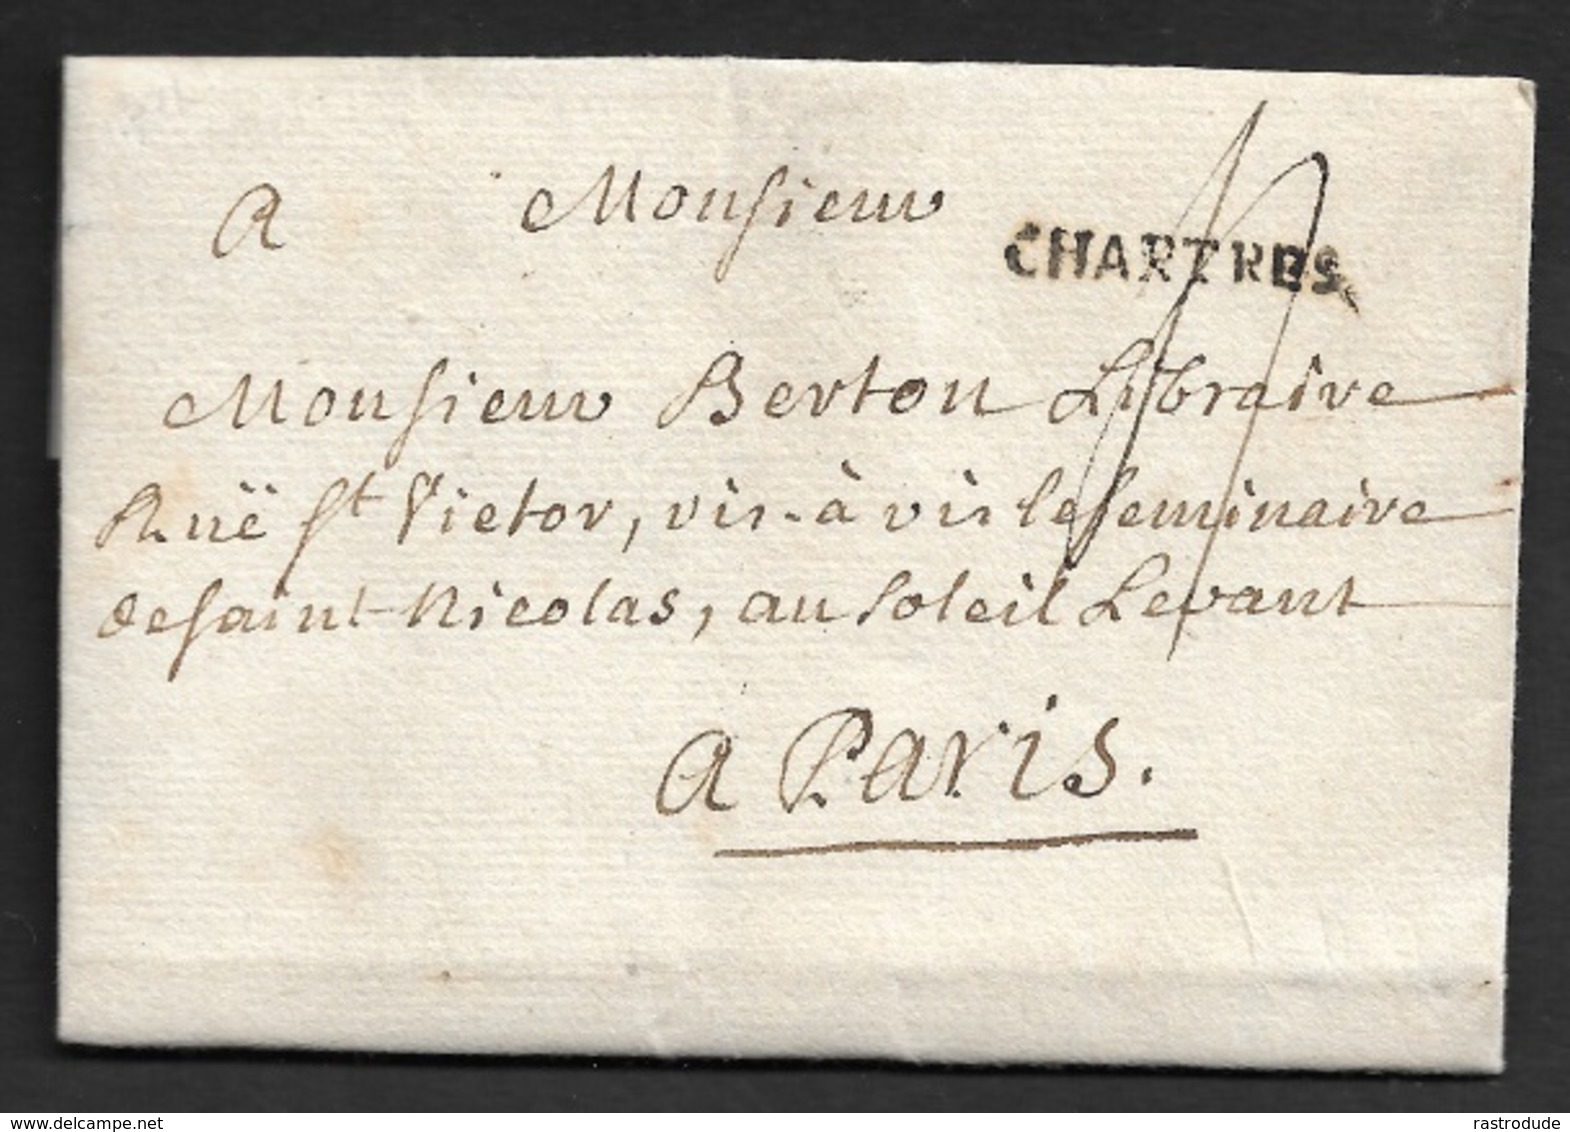 A Monsieur
CHARTRES
Monsieur Berton Libraire
Ruë St Victor, vis-à vis le Seminaire
de Saint-Nicolas, au Soleil Levant
A Paris.
www.delcampe.net
rastrodude